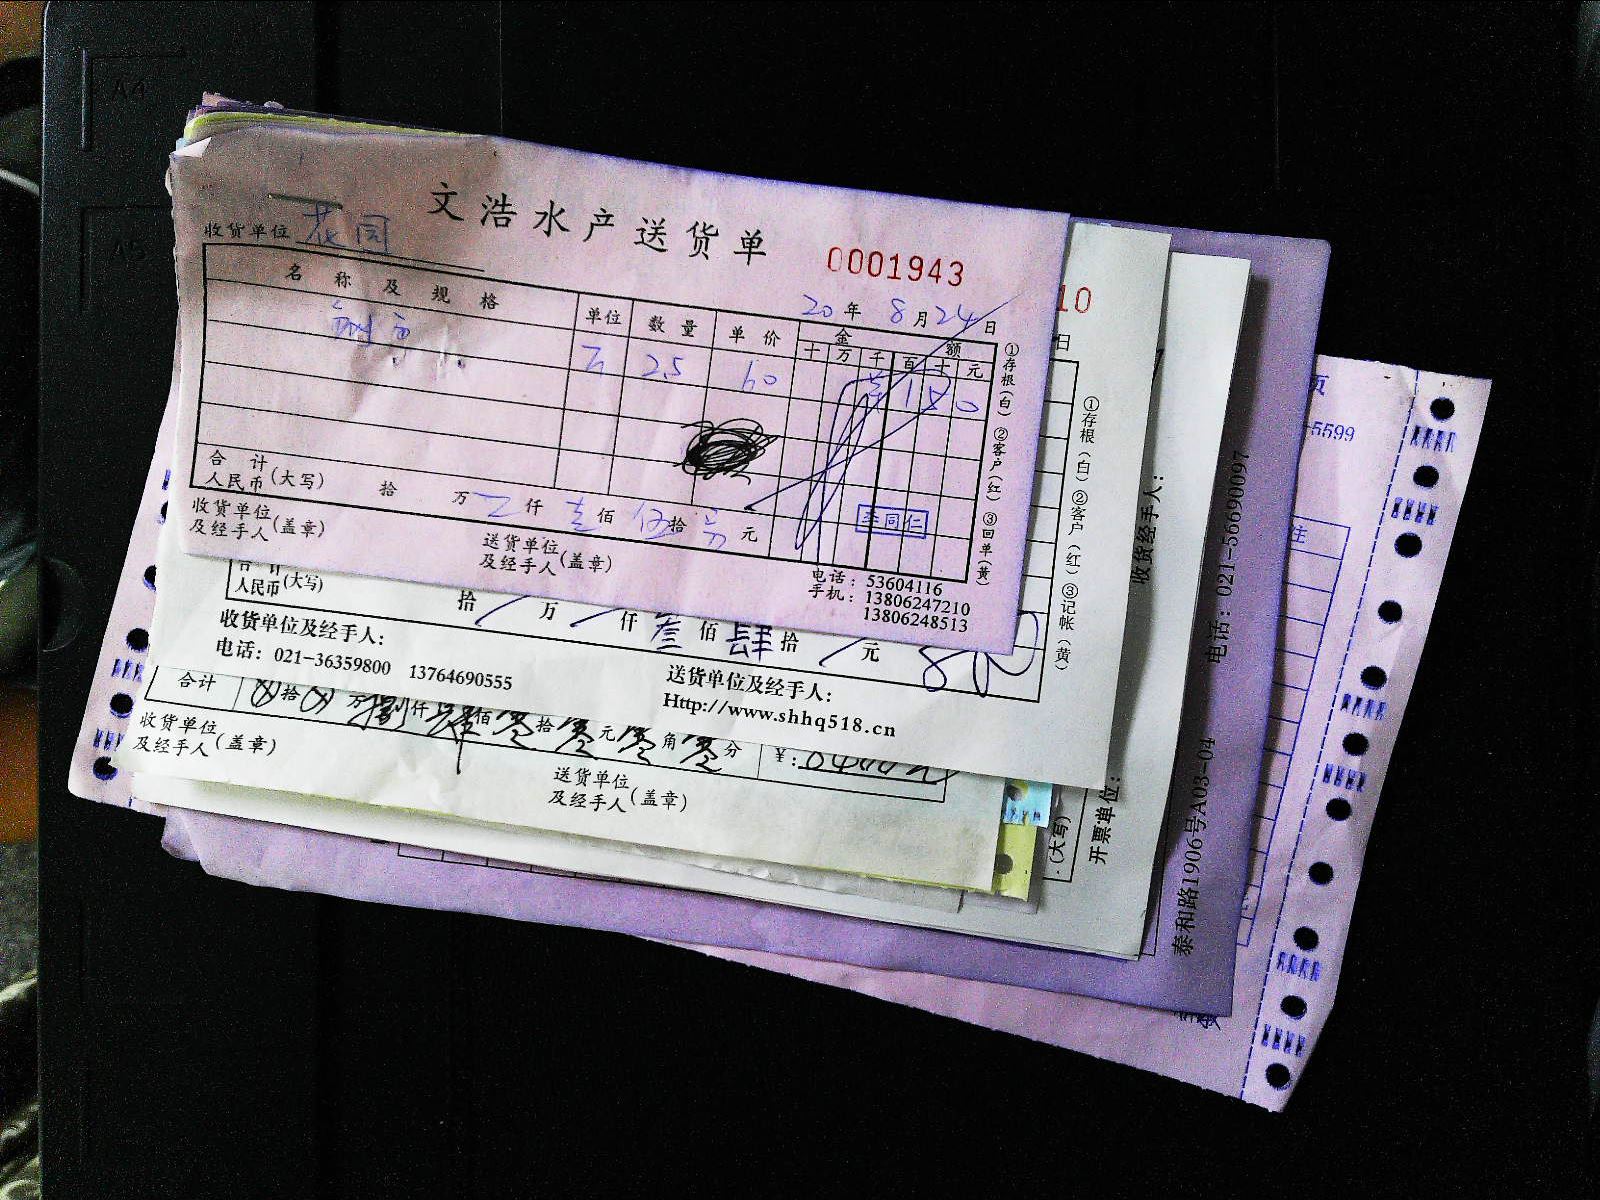 文浩水产送货单
0001943
收货单位 花园
20年8月24日
名称及规格 单位 数量 单价 金额
十万千百十元
25 60 150
①存根(白) ②客户(红) ③回单(黄)
合计
人民币(大写) 拾 万 仟 壹佰 伍拾 元
李同仁
收货单位
及经手人(盖章)
送货单位
及经手人(盖章)
电话:53604116
手机:13806247210
13806248513
10
日
①存根(白) ②客户(红) ③记帐(黄)
合计
人民币(大写) 拾 万 仟 叁佰 肆拾 元
收货单位及经手人:
电话: 021-36359800 13764690555
送货单位及经手人:
Http://www.shhq518.cn
合计 拾 万 捌仟 肆佰 零拾 零元 零角 零分 ¥:
收货单位
及经手人(盖章)
送货单位
及经手人(盖章)
收货经手人:
开票单位:
(大写)
泰和路1906号A03-04 电话:021-56690097
页
-5599
注